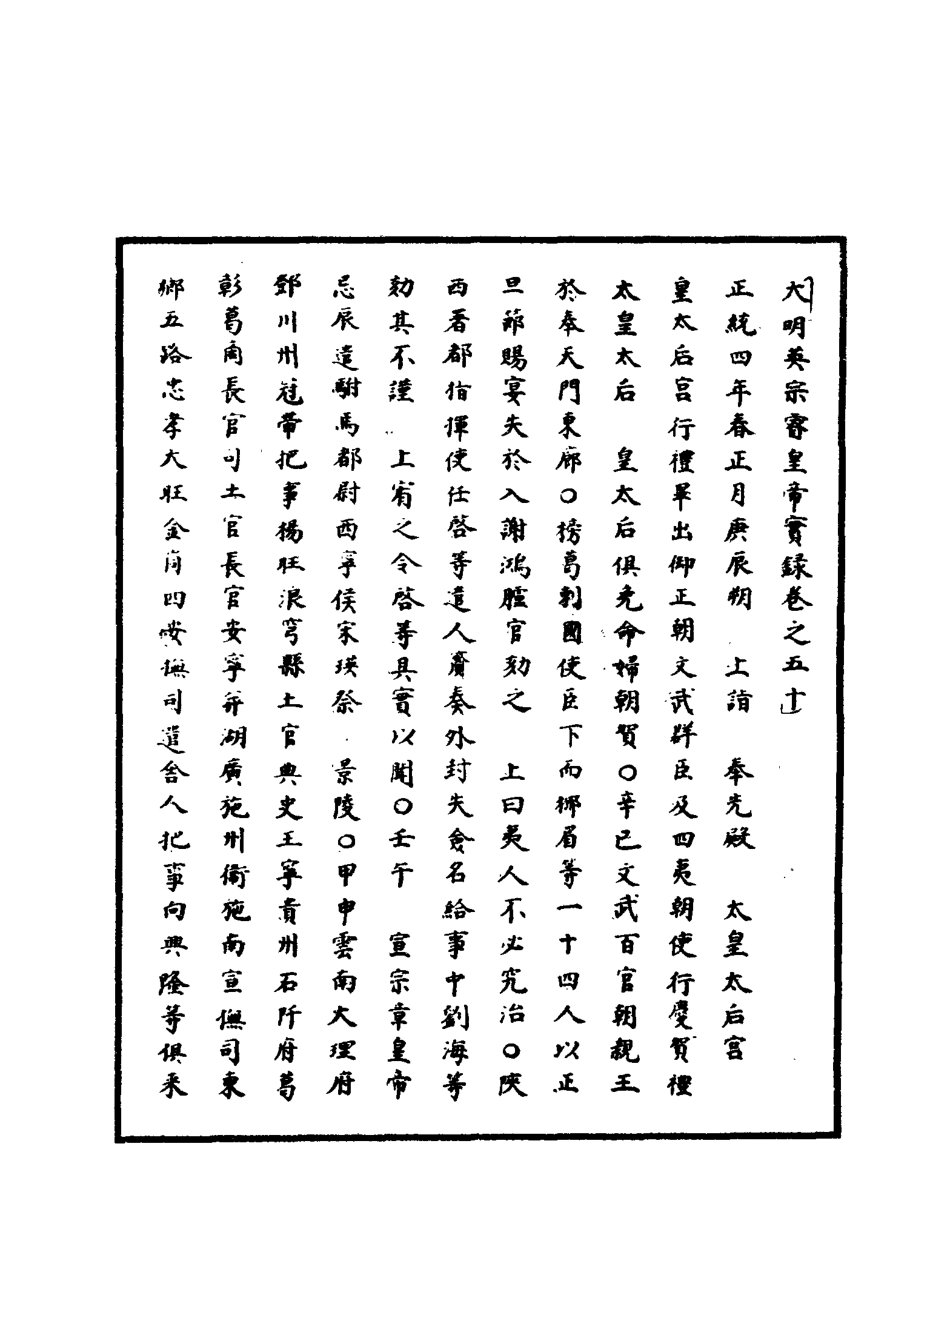 大明英宗睿皇帝實録卷之五十
正統四年春正月庚辰朔　上詣　奉先殿　太皇太后宮
皇太后宮行禮畢出御正朝文武群臣及四夷朝使行慶賀禮
太皇太后　皇太后俱免命婦朝賀○辛巳文武百官朝親王
於奉天門東廊○榜葛剌國使臣下而椰眉等一十四人以正
旦節賜宴失於入謝鴻臚官劾之　上曰夷人不必究治○陝
西署都指揮使任啓等遣人齎奏外封失僉名給事中劉海等
劾其不謹　上宥之令啓等具實以聞○壬午　宣宗章皇帝
忌辰遣駙馬都尉西寧侯宋瑛祭　景陵○甲申雲南大理府
鄧川州冠帶把事楊旺浪穹縣土官典史王寧貴州石阡府葛
彰葛商長官司土官長官安寧并湖廣施州衛施南宣撫司東
鄉五路忠孝大旺金峝四安撫司遣舍人把事向興隆等俱来